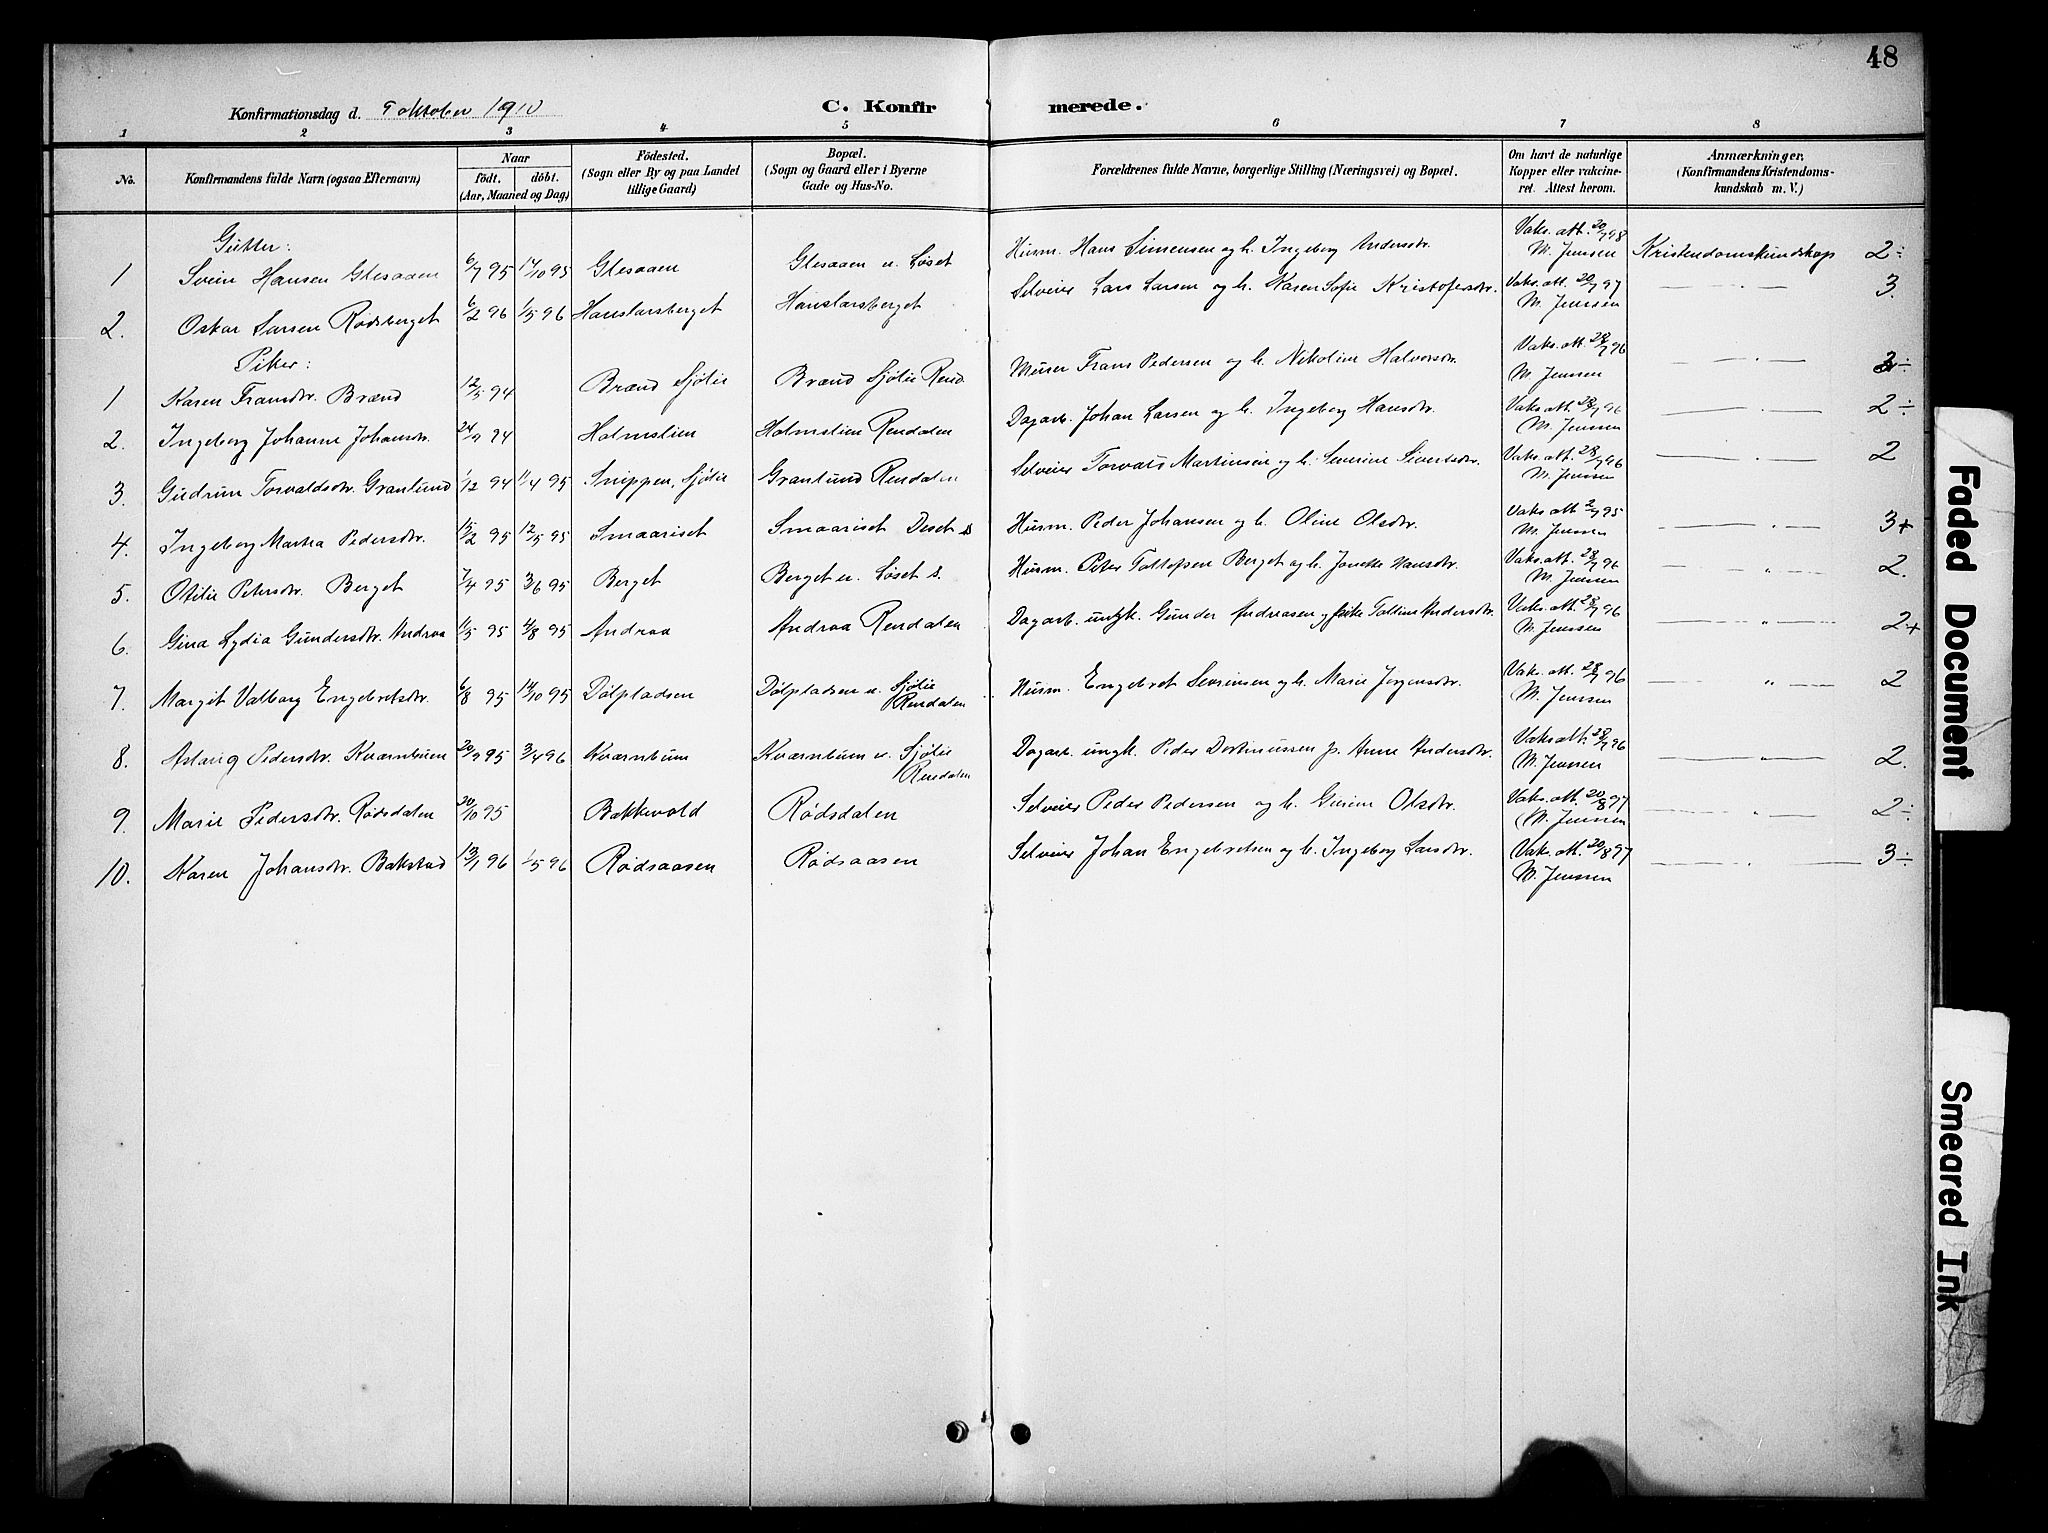 48
Konfirmationsdag d. 9 oktober 1910
C. Konfirmerede.
1 2 3 4 5 6 7 8
No. Konfirmandens fulde Navn (ogsaa Efternavn) Naar født. døbt. (Aar, Maaned og Dag) Fødested. (Sogn eller By og paa Landet tillige Gaard) Bopæl. (Sogn og Gaard eller i Byerne Gade og Hus-No. Forældrenes fulde Navne, borgerlige Stilling (Næringsvei) og Bopæl. Om havt de naturlige Kopper eller vakcineret. Attest herom. Anmærkninger. (Konfirmandens Kristendomskundskab m. V.)
Gutter:
1 Svein Hansen Glesaaen 6/7 95 14/10 95 Glesaaen Glesaaen u. Løset Husm. Hans Simensen og h. Ingeborg Andersdr. Vaks. att. 20/7 98 M. Jenssen Kristendomskundskap 2÷
2. Oskar Larsen Rødsberget 6/2 96 1/5 96 Hanslarsberget Hanslarsberget Selveier Lars Larsen og h. Karen Sofie Kristofersdr. Vaks. att. 20/7 97 M. Jenssen — " — 3.
Piker:
1 Karen Fransdr. Brænd 12/5 94 Brænd Sjølie Brænd Sjølie Rend. Murer Frans Pedersen og h. Nikoline Halvorsdr. Vaks. att. 28/7 96 M. Jenssen — " — ÷
2. Ingeborg Johanne Johansdr. 24/9 94 Holmslien Holmslien Rendalen Dagarb. Johan Larsen og h. Ingeborg Hansdr. Vaks. att. 28/7 96 M. Jenssen — " — 2÷
3. Gudrun Torvaldsdr. Granlund 1/12 94 11/4 95 Snippen, Sjølie Granlund Rendalen Selveier Torvald Martinsen og h. Severine Sivertsdr. Vaks. att. 28/7 96 M. Jenssen — " — 2
4. Ingeborg Martea Pedersdr. 15/2 95 12/5 95 Smaariset Smaariset Deset s Husm. Peder Johansen og h. Oline Olsdr. Vaks. att 2/7 95 M. Jenssen — " — 3+
5. Otilie Petersdr. Berget 7/4 95 3/6 95 Berget Berget u. Løset s. Husm. Peter Tollefsen Berget og h. Jonette Hansdr. Vaks. att. 28/7 96 M. Jenssen — " — 2.
6. Gina Lydia Gundersdr. Andraa 11/5 95 4/8 95 Andraa Andraa Rendalen Dagarb. ungk. Gunder Andreasen og Andersdr. Vaks. att. 28/7 96 M. Jenssen — " — 2+
7. Margit Valborg Engebretsdr. 6/8 95 14/10 95 Dølpladsen Dølpladsen u. Sjølie Rendalen Husm. Engebret Severinsen og h. Marie Jørgensdr. Vaks. att. 28/7 96 M. Jenssen — " — 2
8. Aslaug Pedersdr. Kværnbuen 20/9 95 3/4 96 Kværnbuen Kværnbuen u. Sjølie Rendalen Dagarb. ungk. Peder Dortinussen p. Anne Andersdr. Vaks. att. 28/7 96 M. Jenssen — " — 2.
9. Marie Pedersdr. Rødsdalen 20/10 95 Bakkevold Rødsdalen Selveier Peder Pedersen og h. Gurine Olsdr. Vaks. att. 20/8 97 M. Jenssen — " — 2÷
10. Karen Johansdr. Bakstad 13/1 96 1/5 96 Rødsaasen Rødsaasen Selveier Johan Engebretsen og h. Ingeborg Larsdr. Vak. att. 20/8 97 M. Jenssen — " — 3÷
Faded Document
Smeared Ink